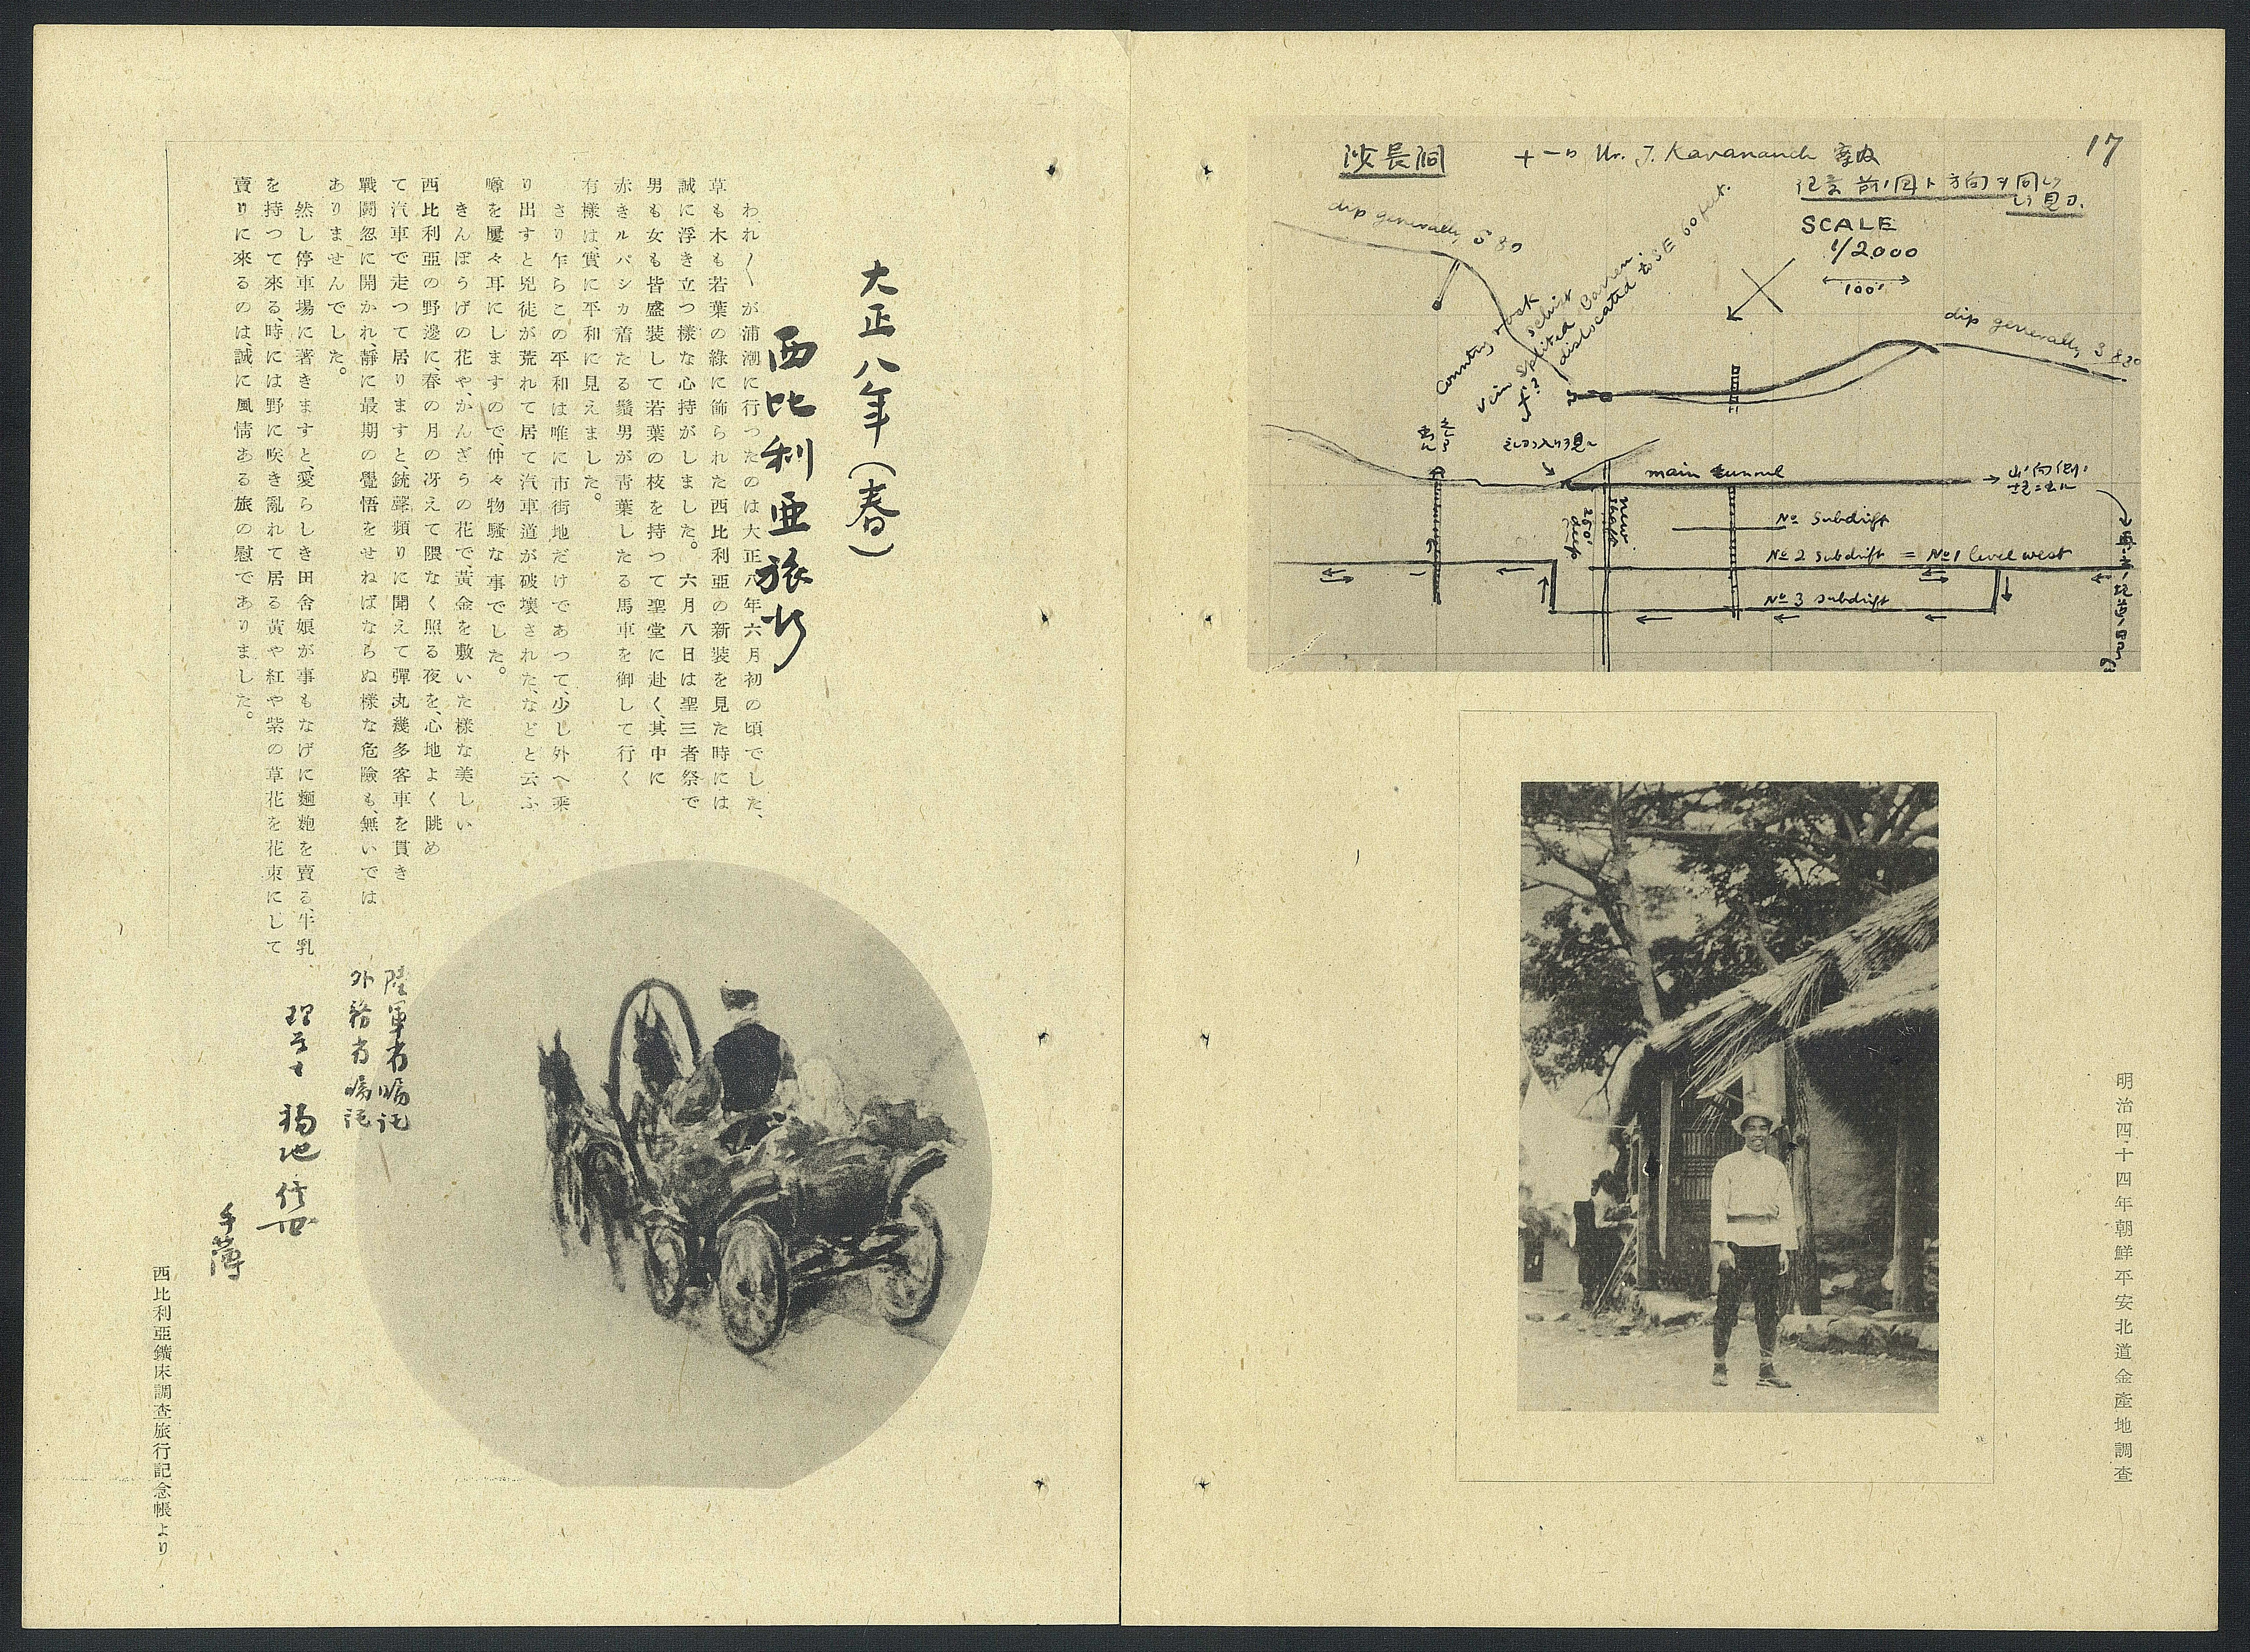 17
沙長洞
十一日 Mr. J. Kavananch 案内
SCALE
1/2000
100'
dip generally S 80
Country rock
schist
Vein splited Barren.
dislocated to SE 60 feet.
dip generally S 80
main tunnel
new shaft
250' deep
No subdrift
No 2 subdrift = No 1 level west
No 3 subdrift
明治四十四年朝鮮平安北道金產地調查
大正八年(春)
西比利亜旅行
われ〱が浦潮に行つたのは大正八年六月初の頃でした、
草も木も若葉の綠に飾られた西比利亞の新裝を見た時には
誠に浮き立つ樣な心持がしました。六月八日は聖三者祭で
男も女も皆盛裝して若葉の枝を持つて聖堂に赴く、其中に
赤きルバシカ着たる鬚男が靑葉したる馬車を御して行く
有樣は、實に平和に見えました。
さり乍らこの平和は唯に市街地だけであつて、少し外へ乘
り出すと兇徒が荒れて居て汽車道が破壞された、などと云ふ
噂を屢々耳にしますので、仲々物騷な事でした。
きんぽうげの花や、かんざうの花で、黃金を敷いた樣な美しい
西比利亞の野邊に、春の月の冴えて隈なく照る夜を、心地よく眺め
て汽車で走つて居りますと、銃聲頻りに聞えて彈丸幾多客車を貫き
戰鬪忽に開かれ、靜に最期の覺悟をせねばならぬ樣な危險も、無いでは
ありませんでした。
然し停車場に著きますと、愛らしき田舍娘が事もなげに麵麭を賣る、牛乳
を持つて來る、時には野に咲き亂れて居る黃や紅や紫の草花を花束にして
賣りに來るのは、誠に風情ある旅の慰でありました。
陸軍省嘱託
外務省嘱託
理学士 福地信世
手薄
西比利亞鑛床調查旅行記念帳より